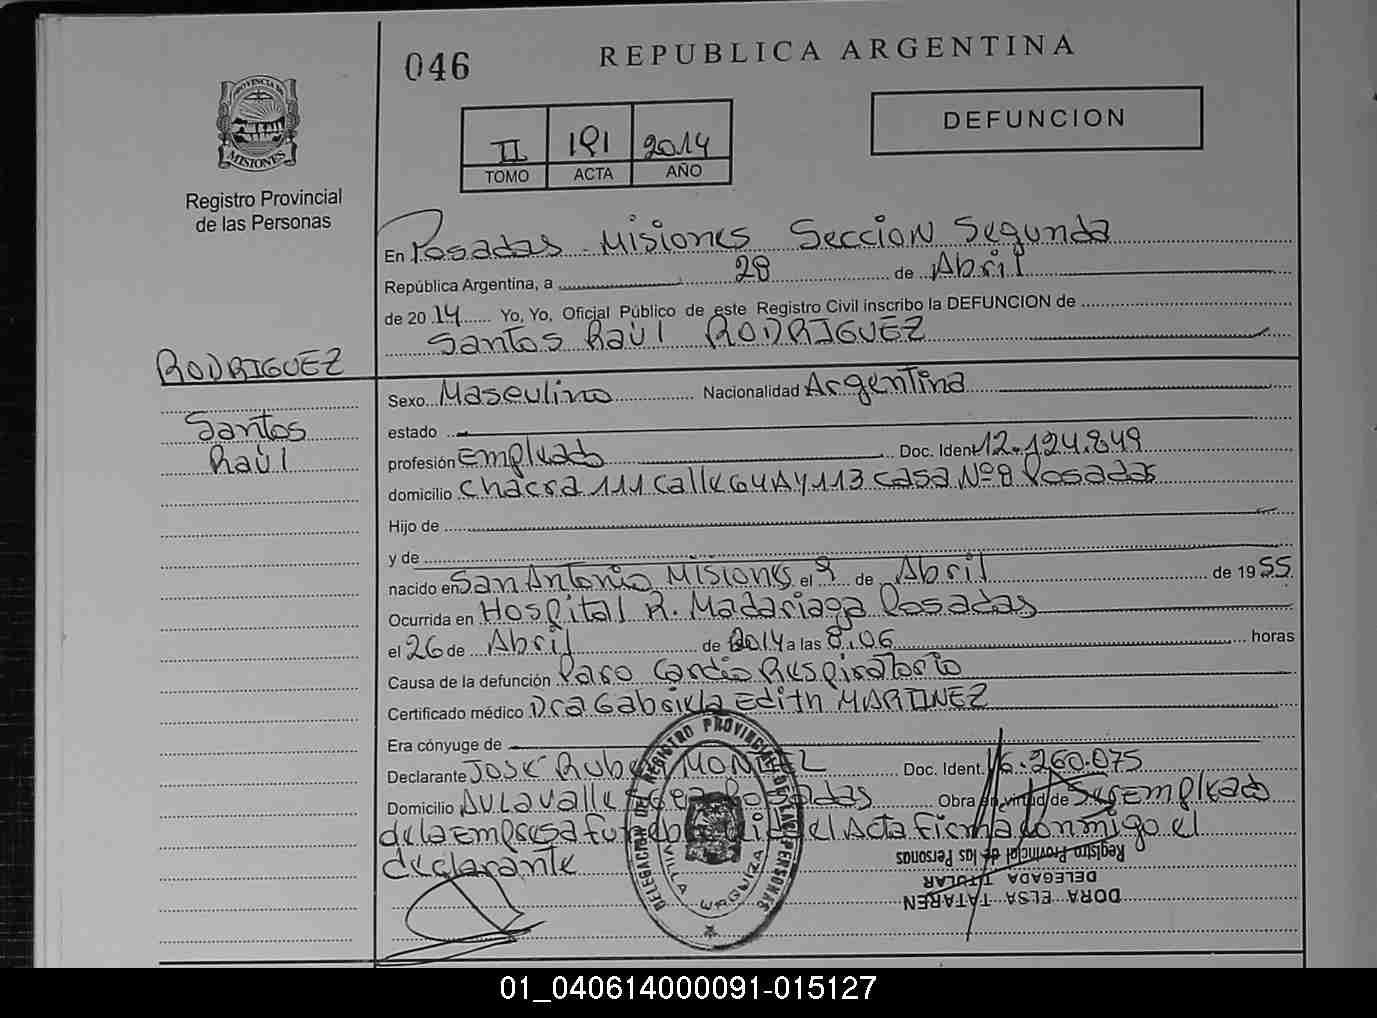 046
REPUBLICA ARGENTINA
PROVINCIA DE
MISIONES
Registro Provincial
de las Personas
II 191 2014
TOMO ACTA AÑO
DEFUNCION
En Posadas Misiones Seccion Segunda
República Argentina, a 28 de Abril
de 2014 Yo, Yo, Oficial Público de este Registro Civil inscribo la DEFUNCION de
Santos Raúl RODRIGUEZ
RODRIGUEZ
Santos
Raúl
Sexo Masculino Nacionalidad Argentina
estado
profesión Empleado Doc. Ident. 12.124.849
domicilio Chacra 111 Calle 64 A y 113 Casa Nº 8 Posadas
Hijo de
y de
nacido en San Antonio Misiones el 9 de Abril de 1955
Ocurrida en Hospital R. Madariaga Posadas
el 26 de Abril de 2014 a las 8:06 horas
Causa de la defunción Paro Cardio Respiratorio
Certificado médico Dra Gabriela Edith MARTINEZ
Era cónyuge de
Declarante José Rubé Doc. Ident. 16.260.075
Domicilio Posadas Obra en virtud de Ser Empleado
de la Empresa el Acta Firma conmigo el
declarante
DELEGACION DEL REGISTRO PROVINCIAL DE LAS PERSONAS
VILLA URQUIZA
DORA ELSA TATAREN
DELEGADA TITULAR
Registro Provincial de las Personas
01_040614000091-015127